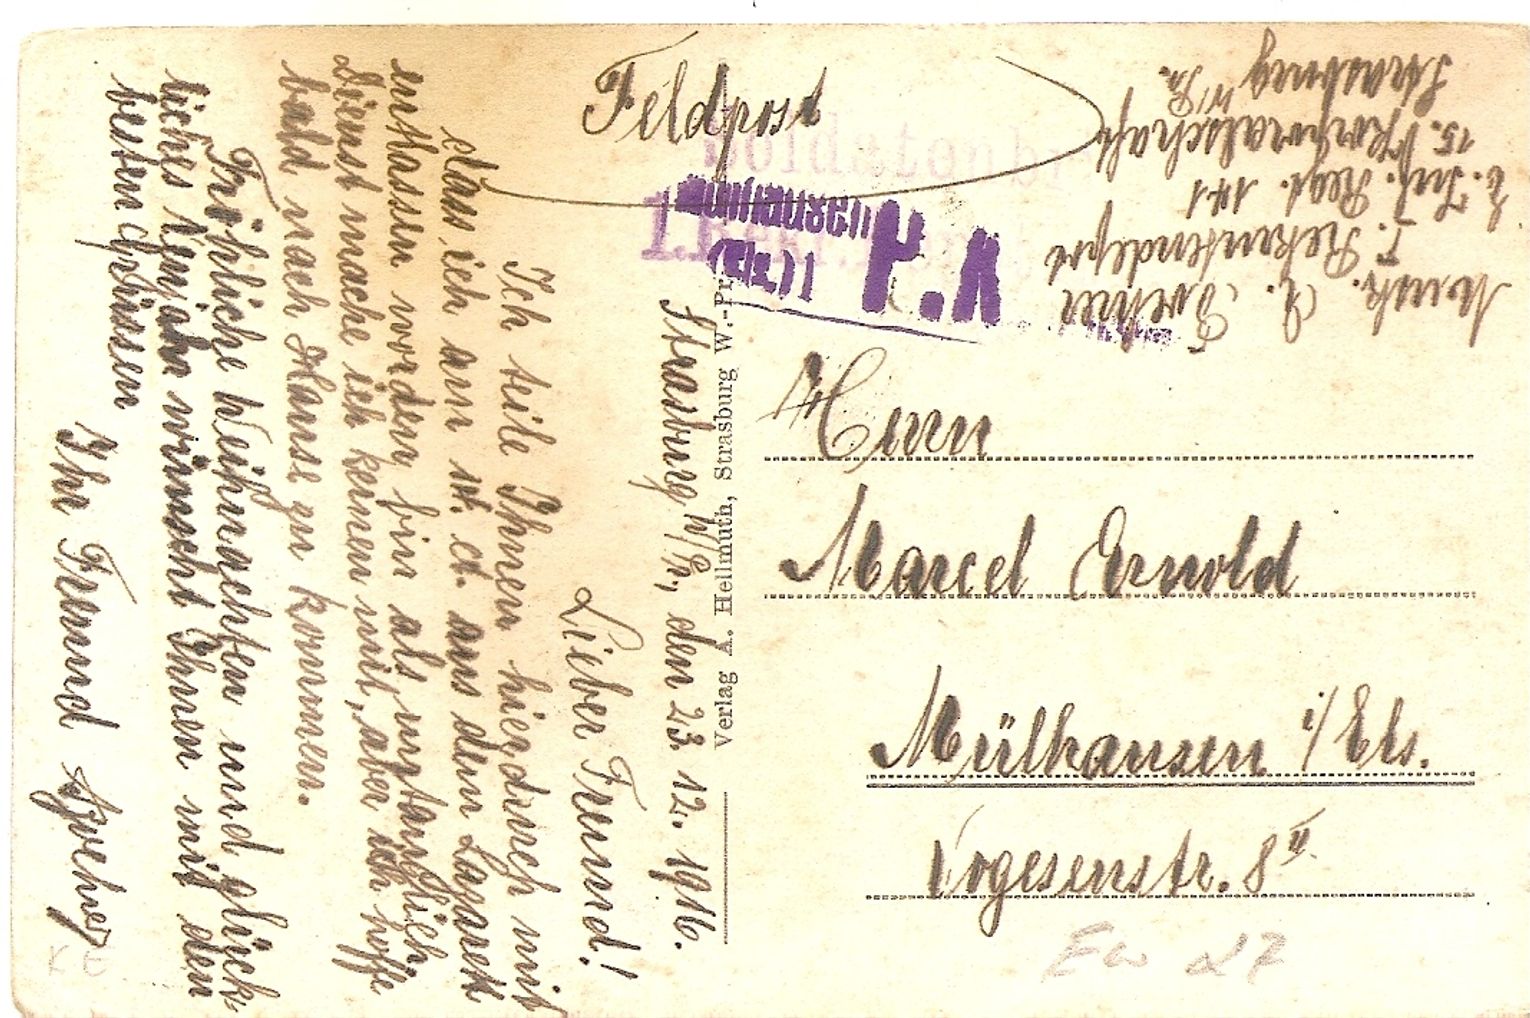 Feldpost
Soldatenbr
Mülhausen
(Els.) 1
P.K.
1. Rekr.
Musk. A.
I. Rekrutendepot
E. Inf. Regt. 141
15. Korporalschaft
Strasburg W/Pr.
Herrn
Marcel Arnold
Mülhausen i/Els.
Vogesenstr. 8 II
Verlag A. Hellmuth, Strasburg W.-Pr.
Strasburg W/Pr., den 23. 12. 1916.
Lieber Freund!
Ich teile Ihnen hierdurch mit
dass ich am ct. aus dem Lazarett
entlassen worden bin als untauglich
Dienst mache ich keinen mit, aber ich hoffe
bald nach Hause zu kommen.
Fröhliche Weihnachten und glück-
liches wünscht Ihnen mit den
besten Grüssen
Ihr Freund